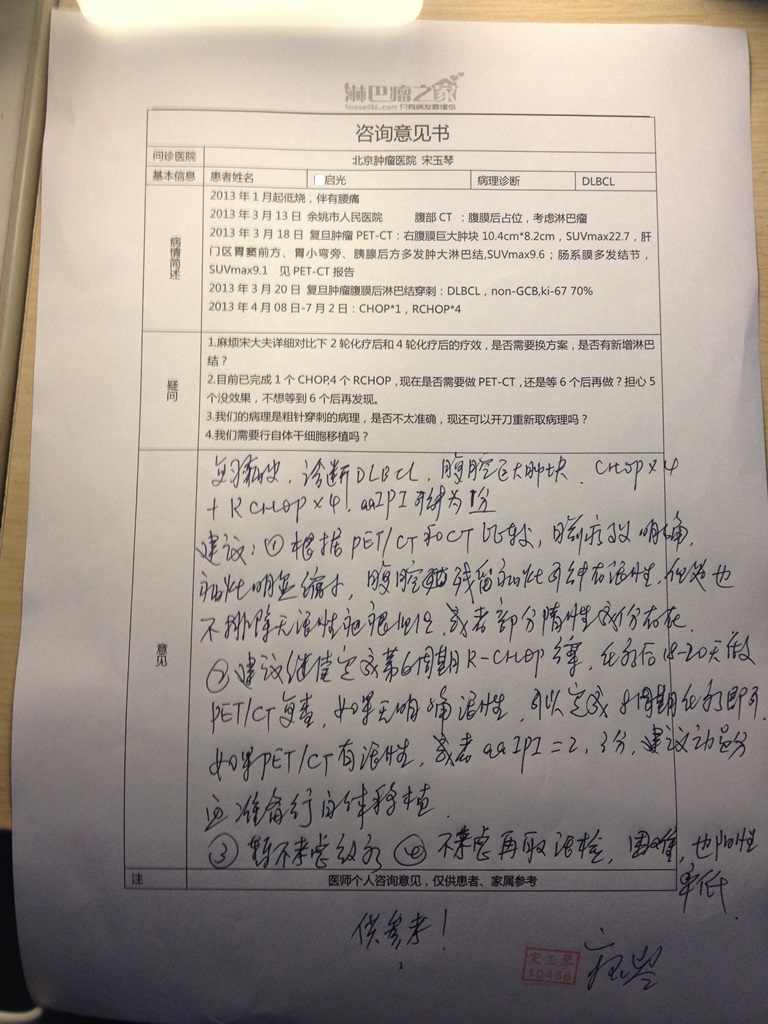 淋巴瘤之家
house086.com 只有病友最懂你
咨询意见书
问诊医院 北京肿瘤医院 宋玉琴
基本信息 患者姓名 启光 病理诊断 DLBCL
病情简述
2013 年 1 月起低烧，伴有腰痛
2013 年 3 月 13 日 余姚市人民医院 腹部 CT ：腹膜后占位，考虑淋巴瘤
2013 年 3 月 18 日 复旦肿瘤 PET-CT：右腹膜巨大肿块 10.4cm*8.2cm，SUVmax22.7，肝
门区胃窦前方、胃小弯旁、胰腺后方多发肿大淋巴结,SUVmax9.6；肠系膜多发结节，
SUVmax9.1 见 PET-CT 报告
2013 年 3 月 20 日 复旦肿瘤腹膜后淋巴结穿刺：DLBCL，non-GCB,ki-67 70%
2013 年 4 月 08 日-7 月 2 日：CHOP*1，RCHOP*4
疑问
1.麻烦宋大夫详细对比下 2 轮化疗后和 4 轮化疗后的疗效，是否需要换方案，是否有新增淋巴
结？
2.目前已完成 1 个 CHOP,4 个 RCHOP，现在是否需要做 PET-CT，还是等 6 个后再做？担心 5
个没效果，不想等到 6 个后再发现。
3.我们的病理是粗针穿刺的病理，是否不太准确，现还可以开刀重新取病理吗？
4.我们需要行自体干细胞移植吗？
意见
复习病史，诊断DLBCL，腹腔巨大肿块，CHOP×4
+ RCHOP×4，aaIPI 可疑为 1分
建议：① 根据 PET/CT 和 CT 比较，目前疗效明确，
病灶明显缩小，腹腔残留病灶可能有活性，但是也
不排除无活性 或者部分隋性成份存在
② 建议继续完成第6周期R-CHOP方案，化疗后18-20天做
PET/CT复查，如果无明确活性，可以完成 8周期化疗即可，
如果PET/CT有活性，或者 aaIPI=2，3分，建议动员分
准备行自体移植
③ 暂不考虑放疗 ④ 不考虑再取活检，困难，也阳性
率低
注 医师个人咨询意见，仅供患者、家属参考
供参考！
1
宋玉琴
10456